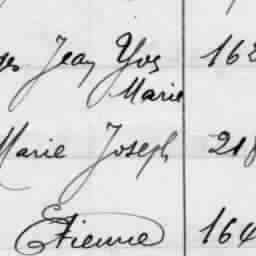 Jean Yves 162
Marie
Marie Joseph 218
Etienne 164